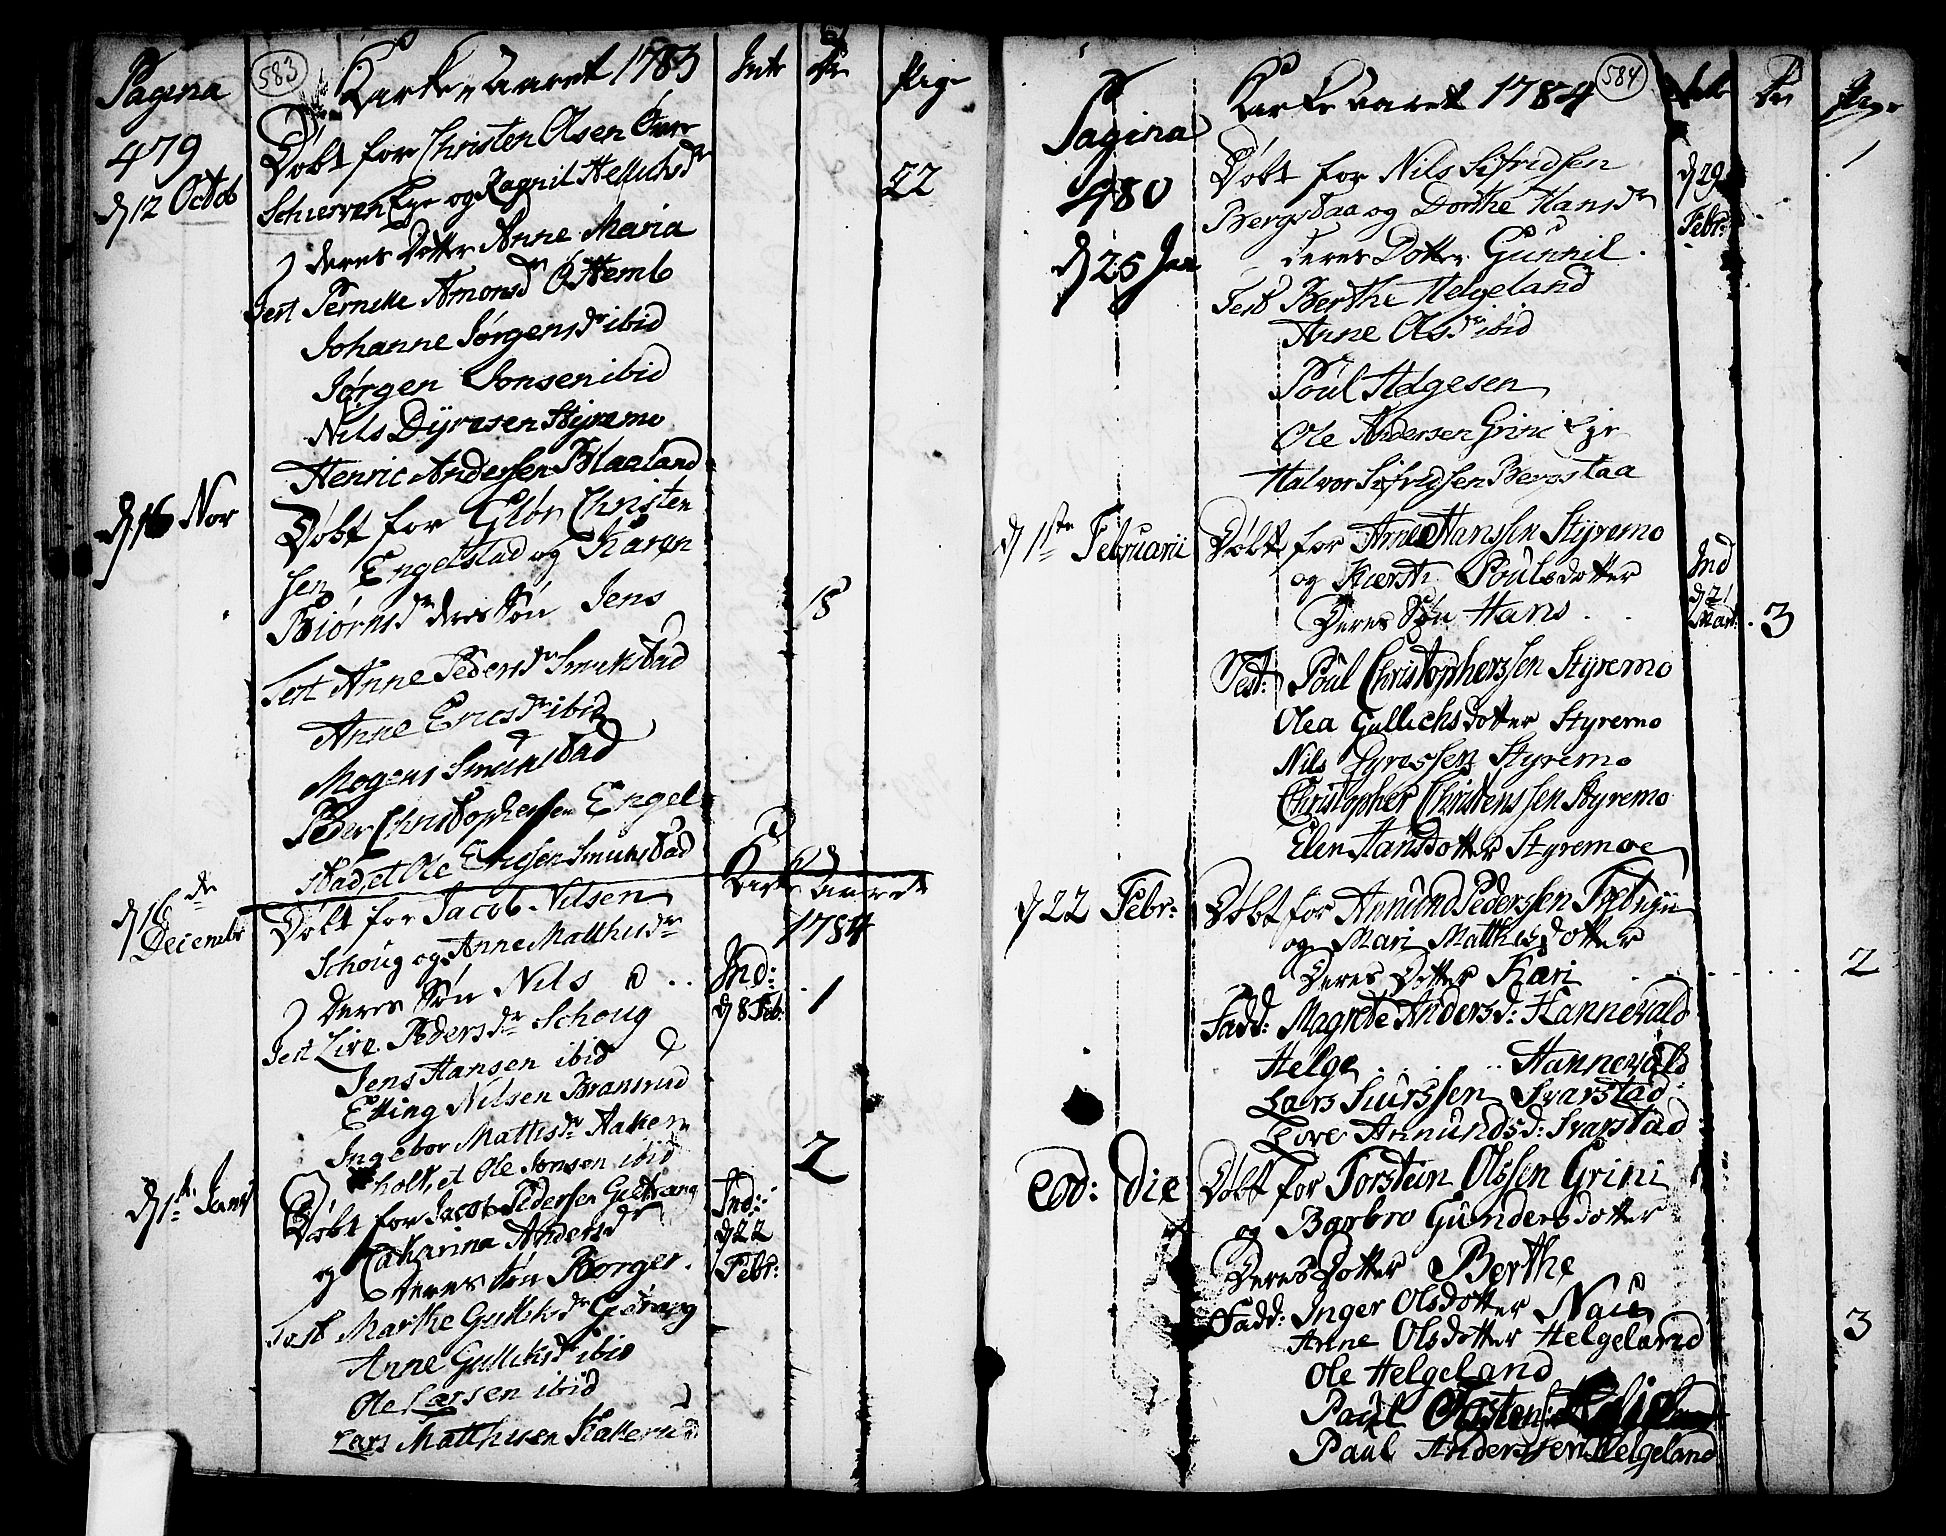 Pagina
479
583
Kirke Aaret 1783
Intr
Dr
Pige
d 12 Octob
Døbt for Christen Olsen
Schuerven Eye og Ragnil Hellichsdr
22
deres Dotter Anne Maria
Test Pernelle Amonsdr
Johanne Jørgensdr ibid
Jørgen Jonsen ibid
Nils Dyresen Styremo
Henric Andersen Blaaland
d 16 Nov
Døbt for Glør Christen
sen Engelstad og Karen
Biørnsdr deres Søn Jens
18
Test Anne Pedersdr Smukstad
Anne Ericsdr ibid
Mogens Smukstad
Peder Christophersen Engel
stad, et Ole Ericsen Smukstad
Kirke Aaret
1784
d 16de
Decembr
Døbt for Jacob Nilsen
Schoug og Anne Matthisdr
deres Søn Nils
Ind:
d 8 Feb:
1
Test Live Pedersdr Schoug
Jens Hansen ibid
Elling Nilsen Bransrud
Ingebor Mattisdr Aaken
holt, et Ole Jonsen ibid
d 1ste Janv
Døbt for Jacob Pedersen Gietrang
og Catharina Andersdr
deres Søn Borger.
Ind:
d 22
Febr:
2
Test Marthe Gulliksdr Getrang
Anne Gulliksdr ibid
Ole Larsen ibid
Lars Matthisen Kakerud
Pagina
480
Kirke Aaret 1784
584
Intr
Dr
Pige
d 25 Jan
Døbt for Nils Sifridsen
Bergstaa og Dorthe Hansdr
deres Dotter Gunnil.
d 29
Febr:
1
Test Berthe Helgeland
Anne Olsdr ibid
Poul Helgesen
Ole Andersen Grini Eje
Halvor Sifridsen Bergstaa
d 1ste Februarii
Døbt for Arne Hanssen Styremo
og Kiersti Poulsdotter
Deres Søn Hans
Ind
d 21
Mart:
3
Test: Poul Christopherssen Styremo
Olea Gullichsdotter Styremo
Nils Dyressen Styremo
Christopher Christenssen Styremo
Elen Hansdotter Styremoe
d 22 Febr:
Døbt for Annund Pederssen
og Mari Matthisdotter
Deres Dotter Kari
2
Fadd: Magrete Andersd: Hannevald
Helge Hannevald
Lars Siurssen Svarstad
Live Annundsd: Svarstad
eod: die
Døbt for Torstein Olssen Grini
og Barbro Gundersdotter
Deres Dotter Berthe
3
Fadd: Inger Olsdotter
Anne Olsdotter Helgeland
Ole Helgeland
Paul
Paul Anderssen Helgeland